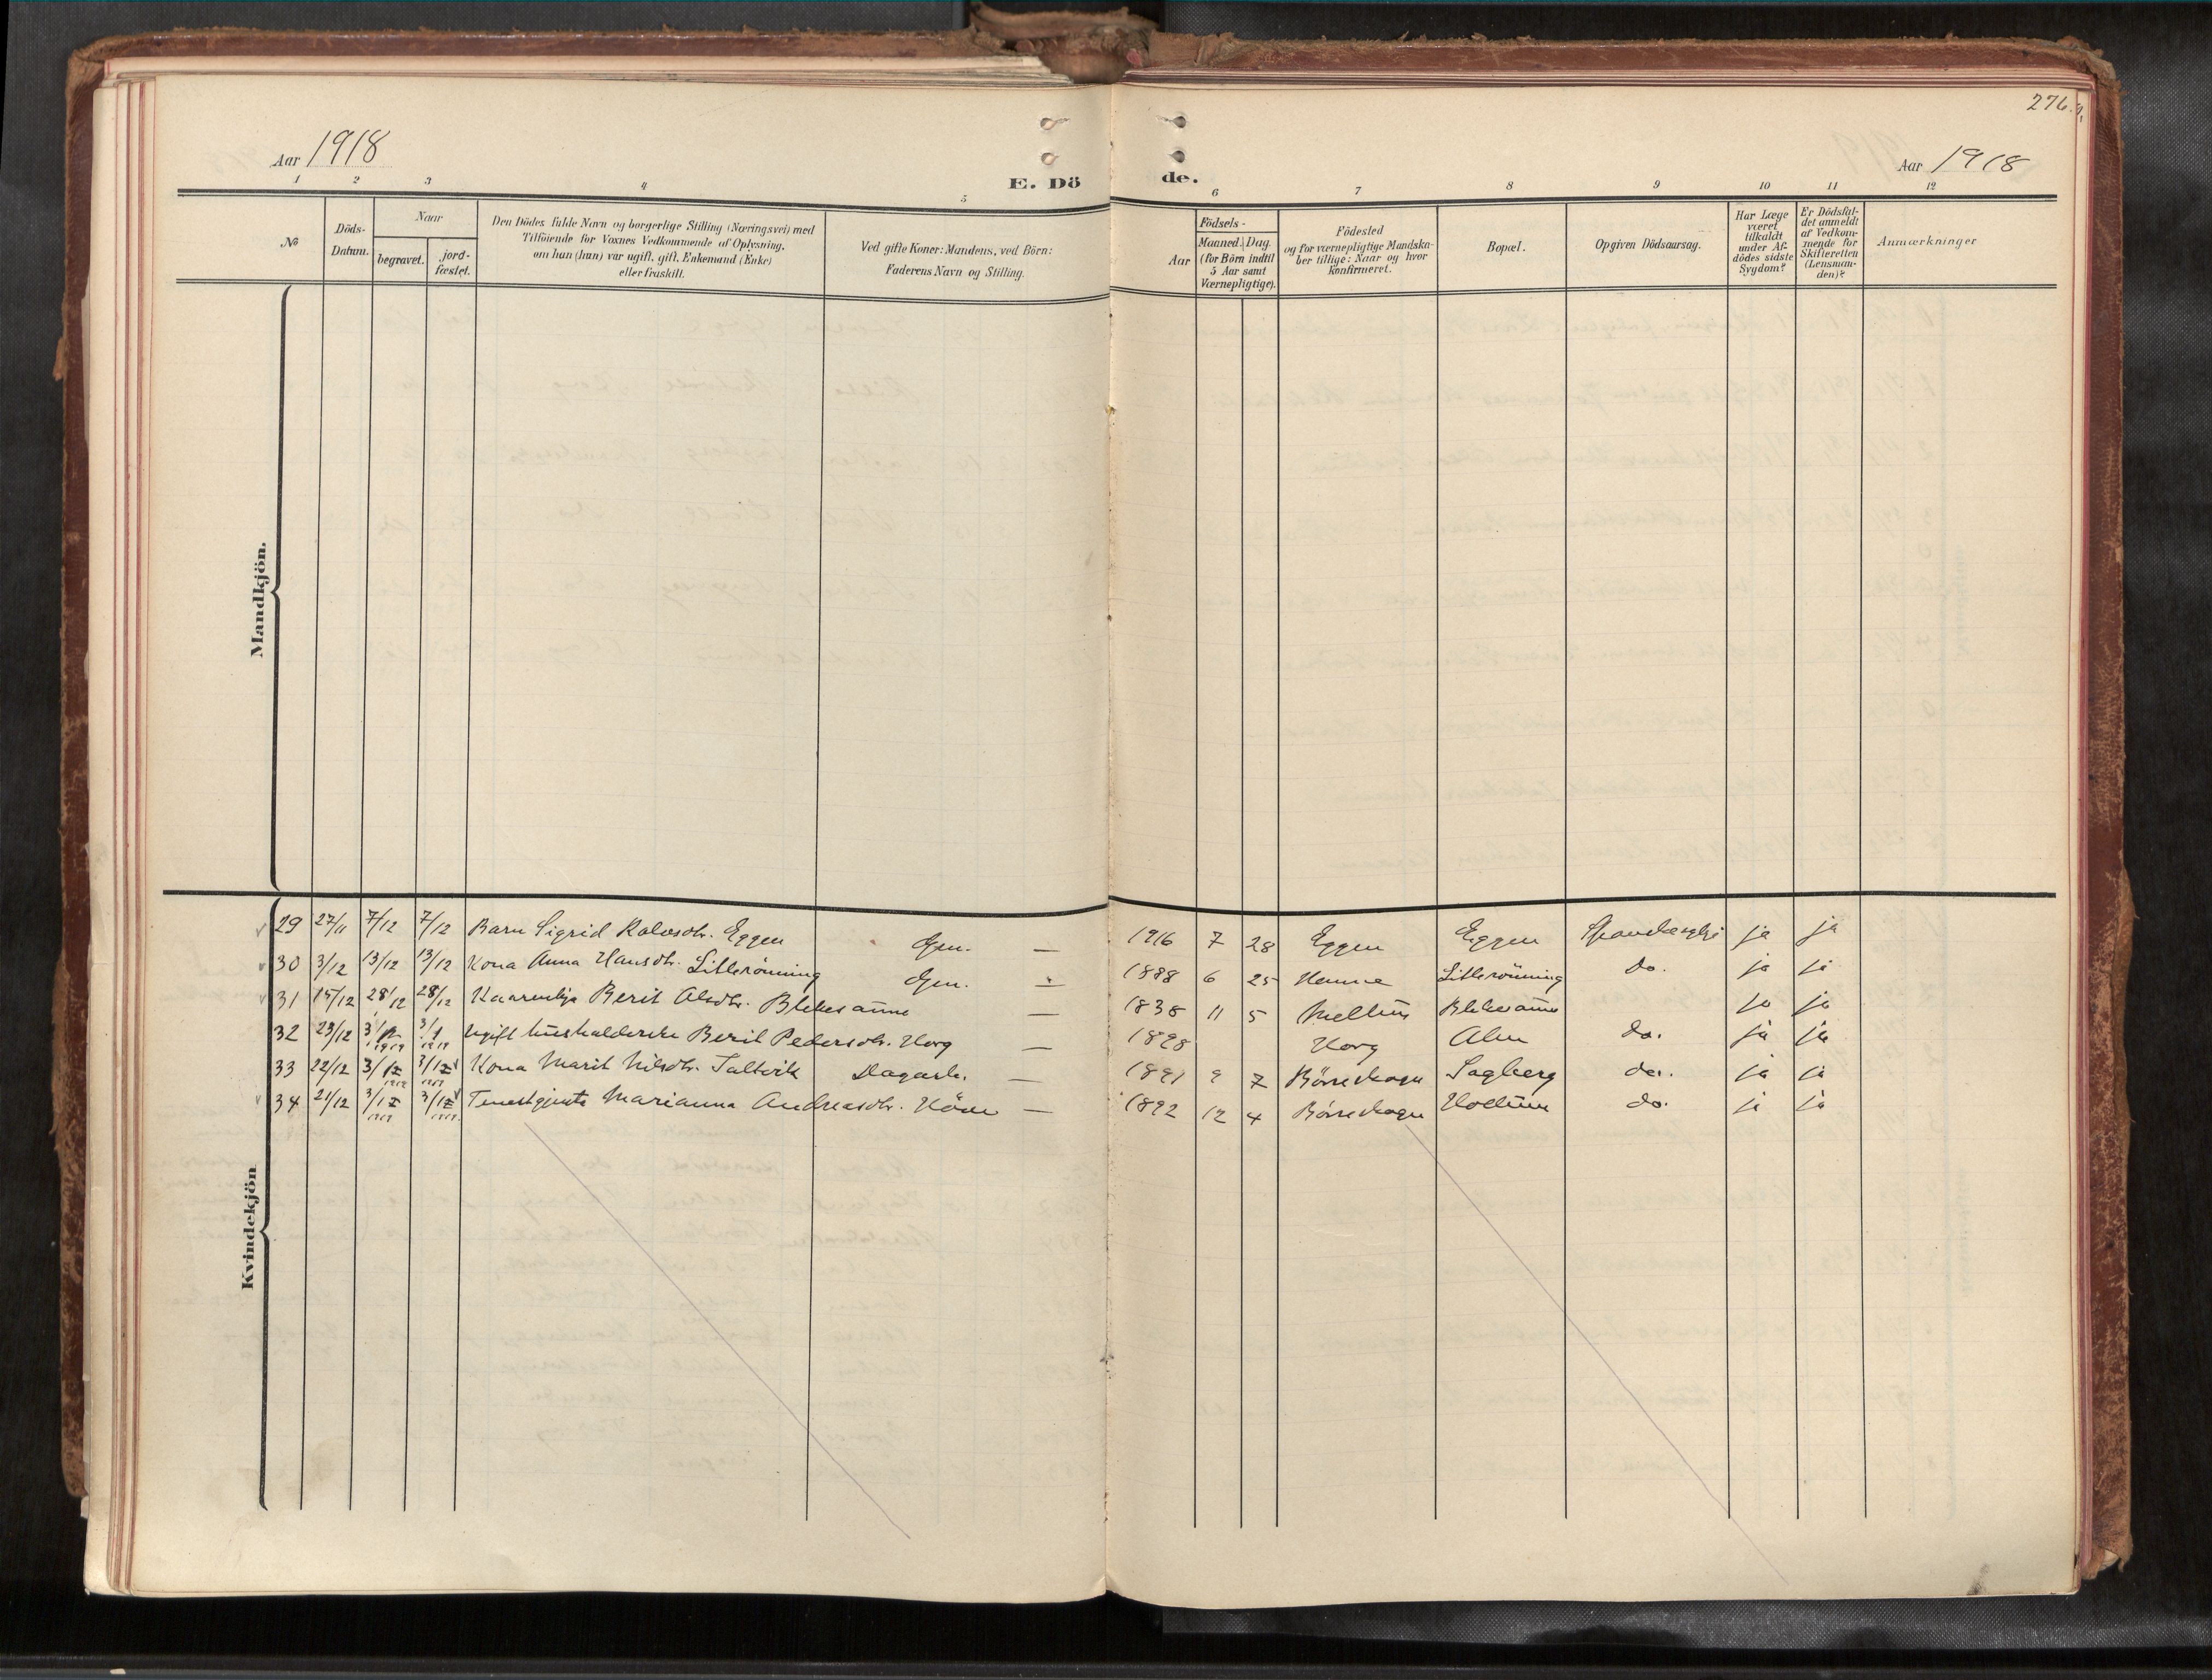 276.
Aar 1918
E. Döde.
Aar 1918
1 2 3 4 5 6 7 8 9 10 11 12
№
Döds-Datum.
Naar
begravet.
jord-fæstet.
Den Dödes fulde Navn og borgerlige Stilling (Næringsvei) med
Tilföiende for Voxnes Vedkommende af Oplysning,
om han (hun) var ugift, gift, Enkemand (Enke)
eller fraskilt.
Ved gifte Koner: Mandens, ved Börn:
Faderens Navn og Stilling.
Födsels-
Aar
Maaned. Dag.
(for Börn indtil
5 Aar samt
Værnepligtige).
Födested
og for værnepligtige Mandska-
ber tillige: Naar og hvor
konfirmeret.
Bopæl.
Opgiven Dödsaarsag.
Har Læge
været
tilkaldt
under Af-
dödes sidste
Sygdom?
Er Dödsfal-
det anmeldt
af Vedkom-
mende for
Skifteretten
(Lensman-
den)?
Anmærkninger
Mandkjön.
Kvindekjön
29 27/11 7/12 7/12 Barn Sigrid Eggen — 1916 7 28 Eggen Eggen ja ja
30 3/12 13/12 13/12 Kona Anna Hansdtr. Litlerönning — 1888 6 25 Litlerönning do. ja ja
31 15/12 28/12 28/12 Berit Olsdtr. — 1838 11 5 ja ja
32 23/12 3/1 1919 3/1 1919 Ugift husholderske Berit Pedersdtr. Horg — 1898 Horg do. ja ja
33 22/12 3/1 1919 3/1 1919 Kona Marit Nilsdtr. Saltvik Dagarb. — 1891 9 7 Börseskogn Sagberg do. ja ja
34 21/12 3/1 1919 3/1 1919 Marianna Andreasdtr. — 1892 12 4 Börseskogn do. ja ja